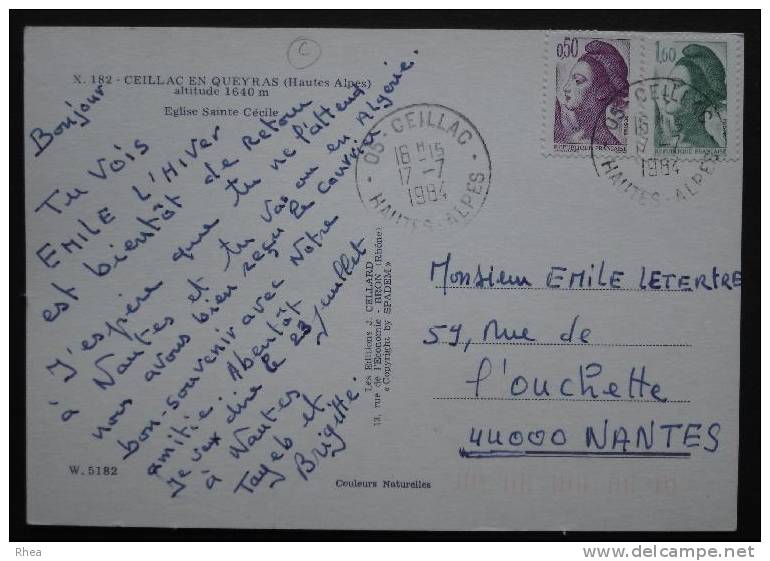 X. 182 - CEILLAC EN QUEYRAS (Hautes Alpes)
altitude 1640 m
Eglise Sainte Cécile
Bonjour
Tu vois
EMILE L'HIVER
est bientôt de retour
J'espère que tu ne l'attend
à Nantes et tu vas ou en Algérie.
nous avous bien reçu le courrier
bon-souvenir avec Notre
amitié. Abentôt
Je vex dire le 23 juillet
à Nantes
Tayeb et
Brigitte.
W. 5182
Couleurs Naturelles
Les Editions J. CELLARD
13, rue de l'Economie - BRON (Rhône)
« Copyright by SPADEM »
C
0,50
REPUBLIQUE FRANÇAISE
1,60
REPUBLIQUE FRANÇAISE
05 - CEILLAC
16 H 15
17 - 7
1984
HAUTES-ALPES
05 - CEILLAC
16 H
17 - 7
1984
HAUTES-ALPES
Monsieur EMILE LETERTRE
59, rue de
l'ouchette
44000 NANTES
Rhea
http://www.delcampe.net